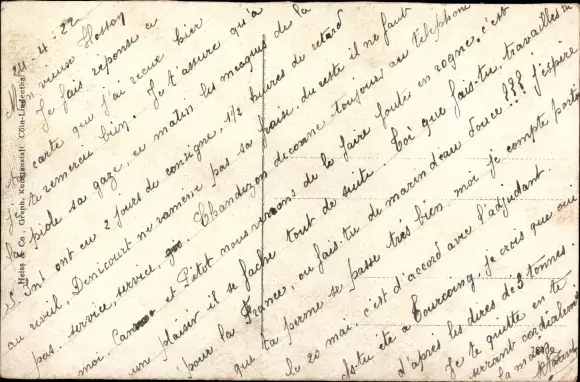 24-4-22
Mon vieux
Je fais réponse à
ta carte que j'ai reçue hier
je te remercie bien. Je t'assure qu'à
la piole sa gaze, ce matin les mecques de la
St Int ont eu 2 jours de consigne, 1/2 heures de retard
au réveil, Denicourt ne ramène pas sa fraise, du reste il ne faut
pas, service, service, Chandezon décosne toujours au téléphone
moi et Pitot nous venons de le faire foutre en rogne, c'est
un plaisir il se fâche tout de suite. Toi que fais-tu, travailles tu
pour la France, ou fais-tu de marin d'eau douce ??? J'espère
que ta perme se passe très bien, moi je compte partir
le 20 mai, c'est d'accord avec l'adjudant
As-tu été à Tourcoing, je crois que oui
d'après les dires de 3 tonnes.
Je te quitte en te
serrant cordialement
la main
Heiss & Co., Graph. Kunstanstalt Cöln-Lindenthal